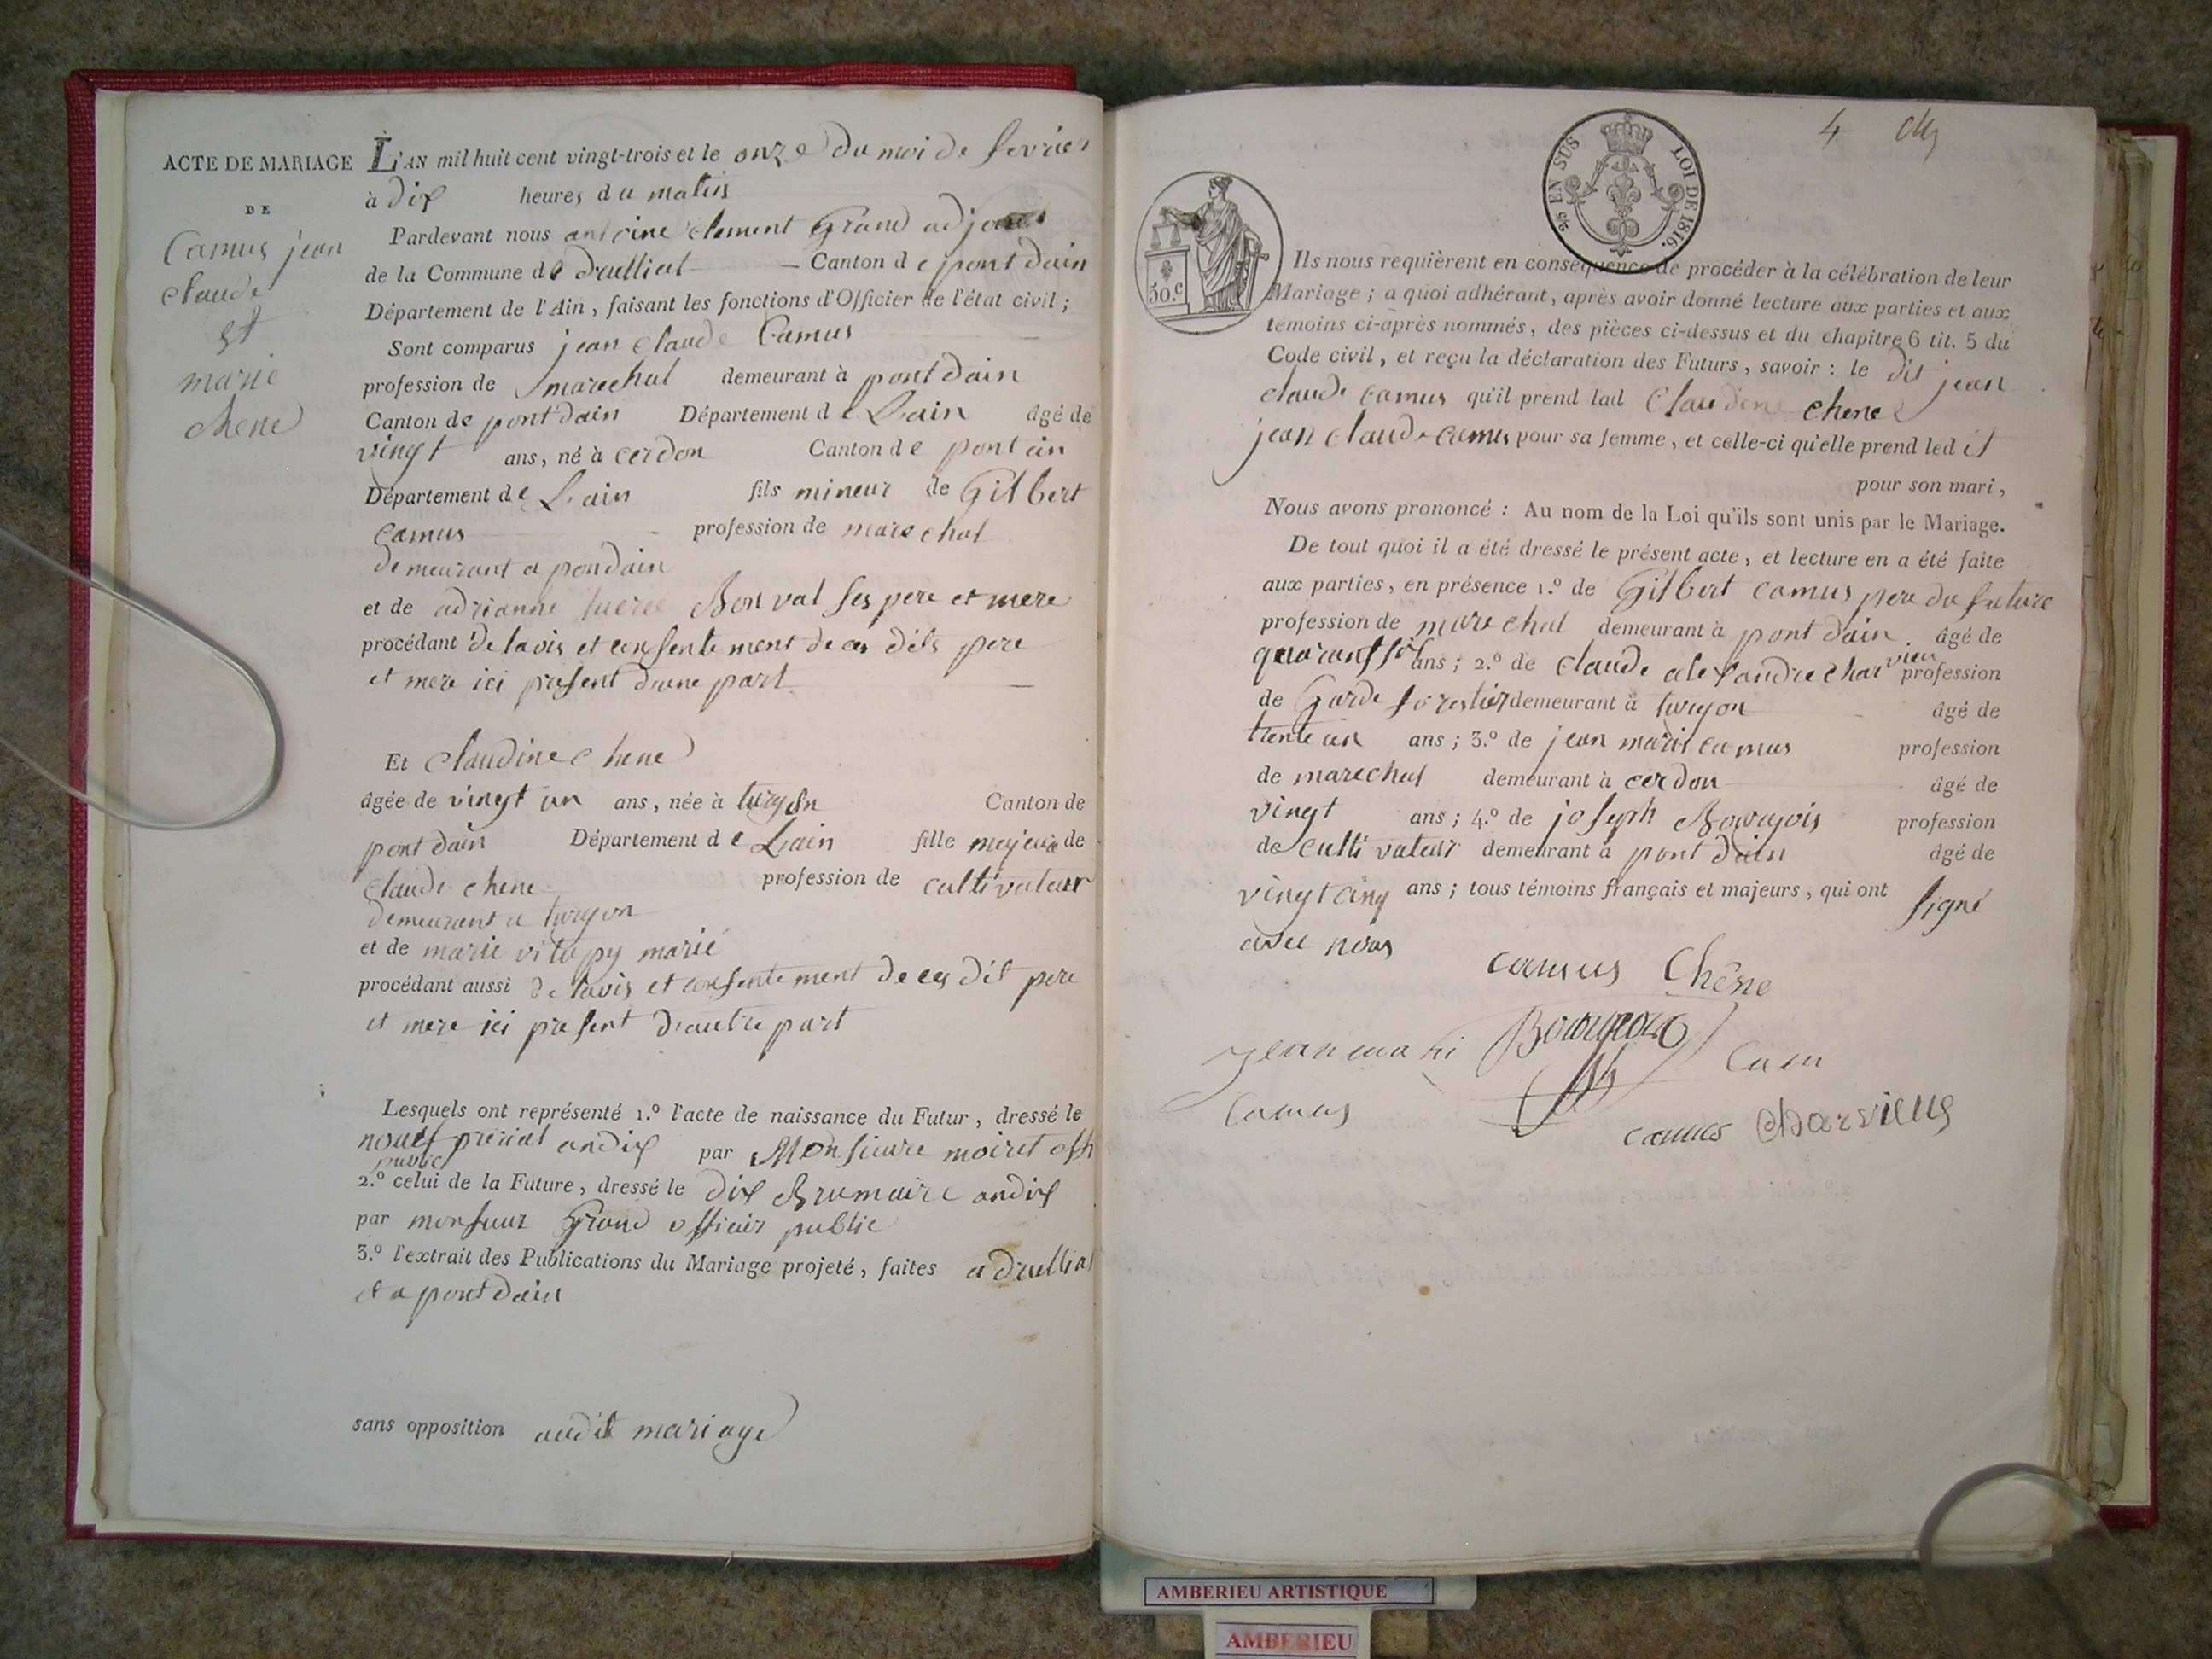 ACTE DE MARIAGE
DE
Camus jean
claude
et
marie
chene
L'AN mil huit cent vingt-trois et le onze du moi de fevrier
à dix heures du matin
Pardevant nous antoine clement Grand adjoint
de la Commune de druilliat Canton de pont dain
Département de l'Ain, faisant les fonctions d'Officier de l'état civil;
Sont comparus jean claude Camus
profession de marechal demeurant à pont dain
Canton de pont dain Département de Lain âgé de
vingt ans, né à cerdon Canton de pont ain
Département de Lain fils mineur de Gilbert
camus profession de marechal
demeurant a pondain
et de adrianne Bonval ses pere et mere
procédant de lavis et consentement de ces dits pere
et mere ici present dune part
Et Claudine chene
âgée de vingt un ans, née à turgon Canton de
pont dain Département de Lain fille majeure de
claude chene profession de cultivateur
demeurant a turgon
et de marie vitupy marié
procédant aussi de lavis et consentement de ces dit pere
et mere ici present dautre part
Lesquels ont représenté 1.º l'acte de naissance du Futur, dressé le
nouef prerial an dix par Monsieure moiret off
public
2.º celui de la Future, dressé le dix Brumaire an dix
par monsieur Grand officier public
3.º l'extrait des Publications du Mariage projeté, faites a druilliat
et a pont dain
sans opposition audit mariage
4
EN SUS LOI DE 1816.
50.c
Ils nous requièrent en conséquence de procéder à la célébration de leur
Mariage; a quoi adhérant, après avoir donné lecture aux parties et aux
témoins ci-après nommés, des pièces ci-dessus et du chapitre 6 tit. 5 du
Code civil, et reçu la déclaration des Futurs, savoir: le dit jean
claude camus qu'il prend lad Claudine chene
jean claude camus pour sa femme, et celle-ci qu'elle prend led it
pour son mari,
Nous avons prononcé: Au nom de la Loi qu'ils sont unis par le Mariage.
De tout quoi il a été dressé le présent acte, et lecture en a été faite
aux parties, en présence 1.º de Gilbert camus pere du future
profession de marechal demeurant à pont dain âgé de
quarant six ans; 2.º de claude alexandre charvieu profession
de Garde forestier demeurant à turgon âgé de
trente un ans; 3.º de jean marie camus profession
de marechal demeurant à cerdon âgé de
vingt ans; 4.º de joseph Bourgois profession
de cultivateur demeurant à pont dain âgé de
vingt cinq ans; tous témoins français et majeurs, qui ont signé
avec nous
camus Chêne
jean mari Bourgeois Cam
Camus
camus Charvieux
AMBERIEU ARTISTIQUE
AMBERIEU